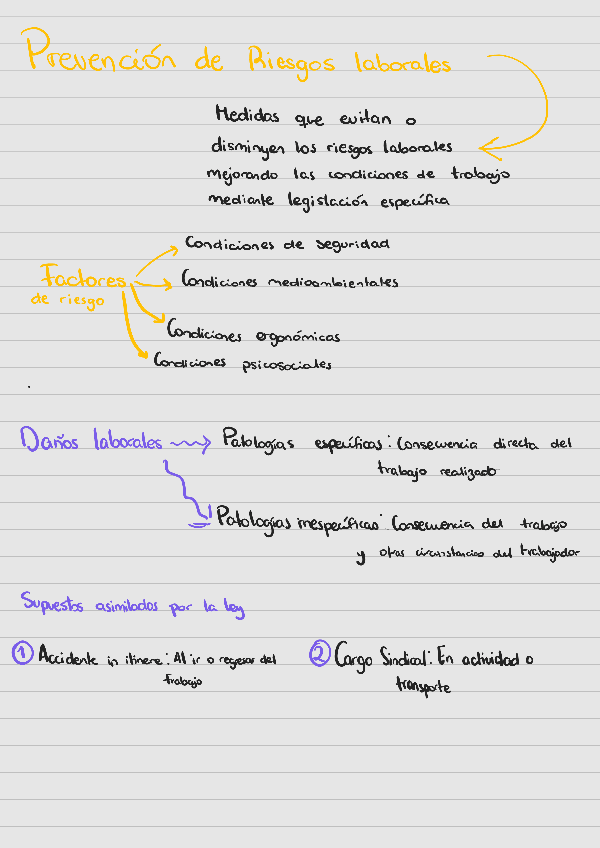 Prevención de Riesgos laborales
Medidas que evitan o
disminuyen los riesgos laborales
mejorando las condiciones de trabajo
mediante legislación específica
Condiciones de seguridad
Factores
de riesgo
Condiciones medioambientales
Condiciones ergonómicas
Condiciones psicosociales
Daños laborales
Patologías específicas: Consecuencia directa del
trabajo realizado
Patologías inespecíficas: Consecuencia del trabajo
y otras circunstancias del trabajador
Supuestos asimilados por la ley
1 Accidente in itinere: Al ir o regresar del
trabajo
2 Cargo Sindical: En actividad o
transporte